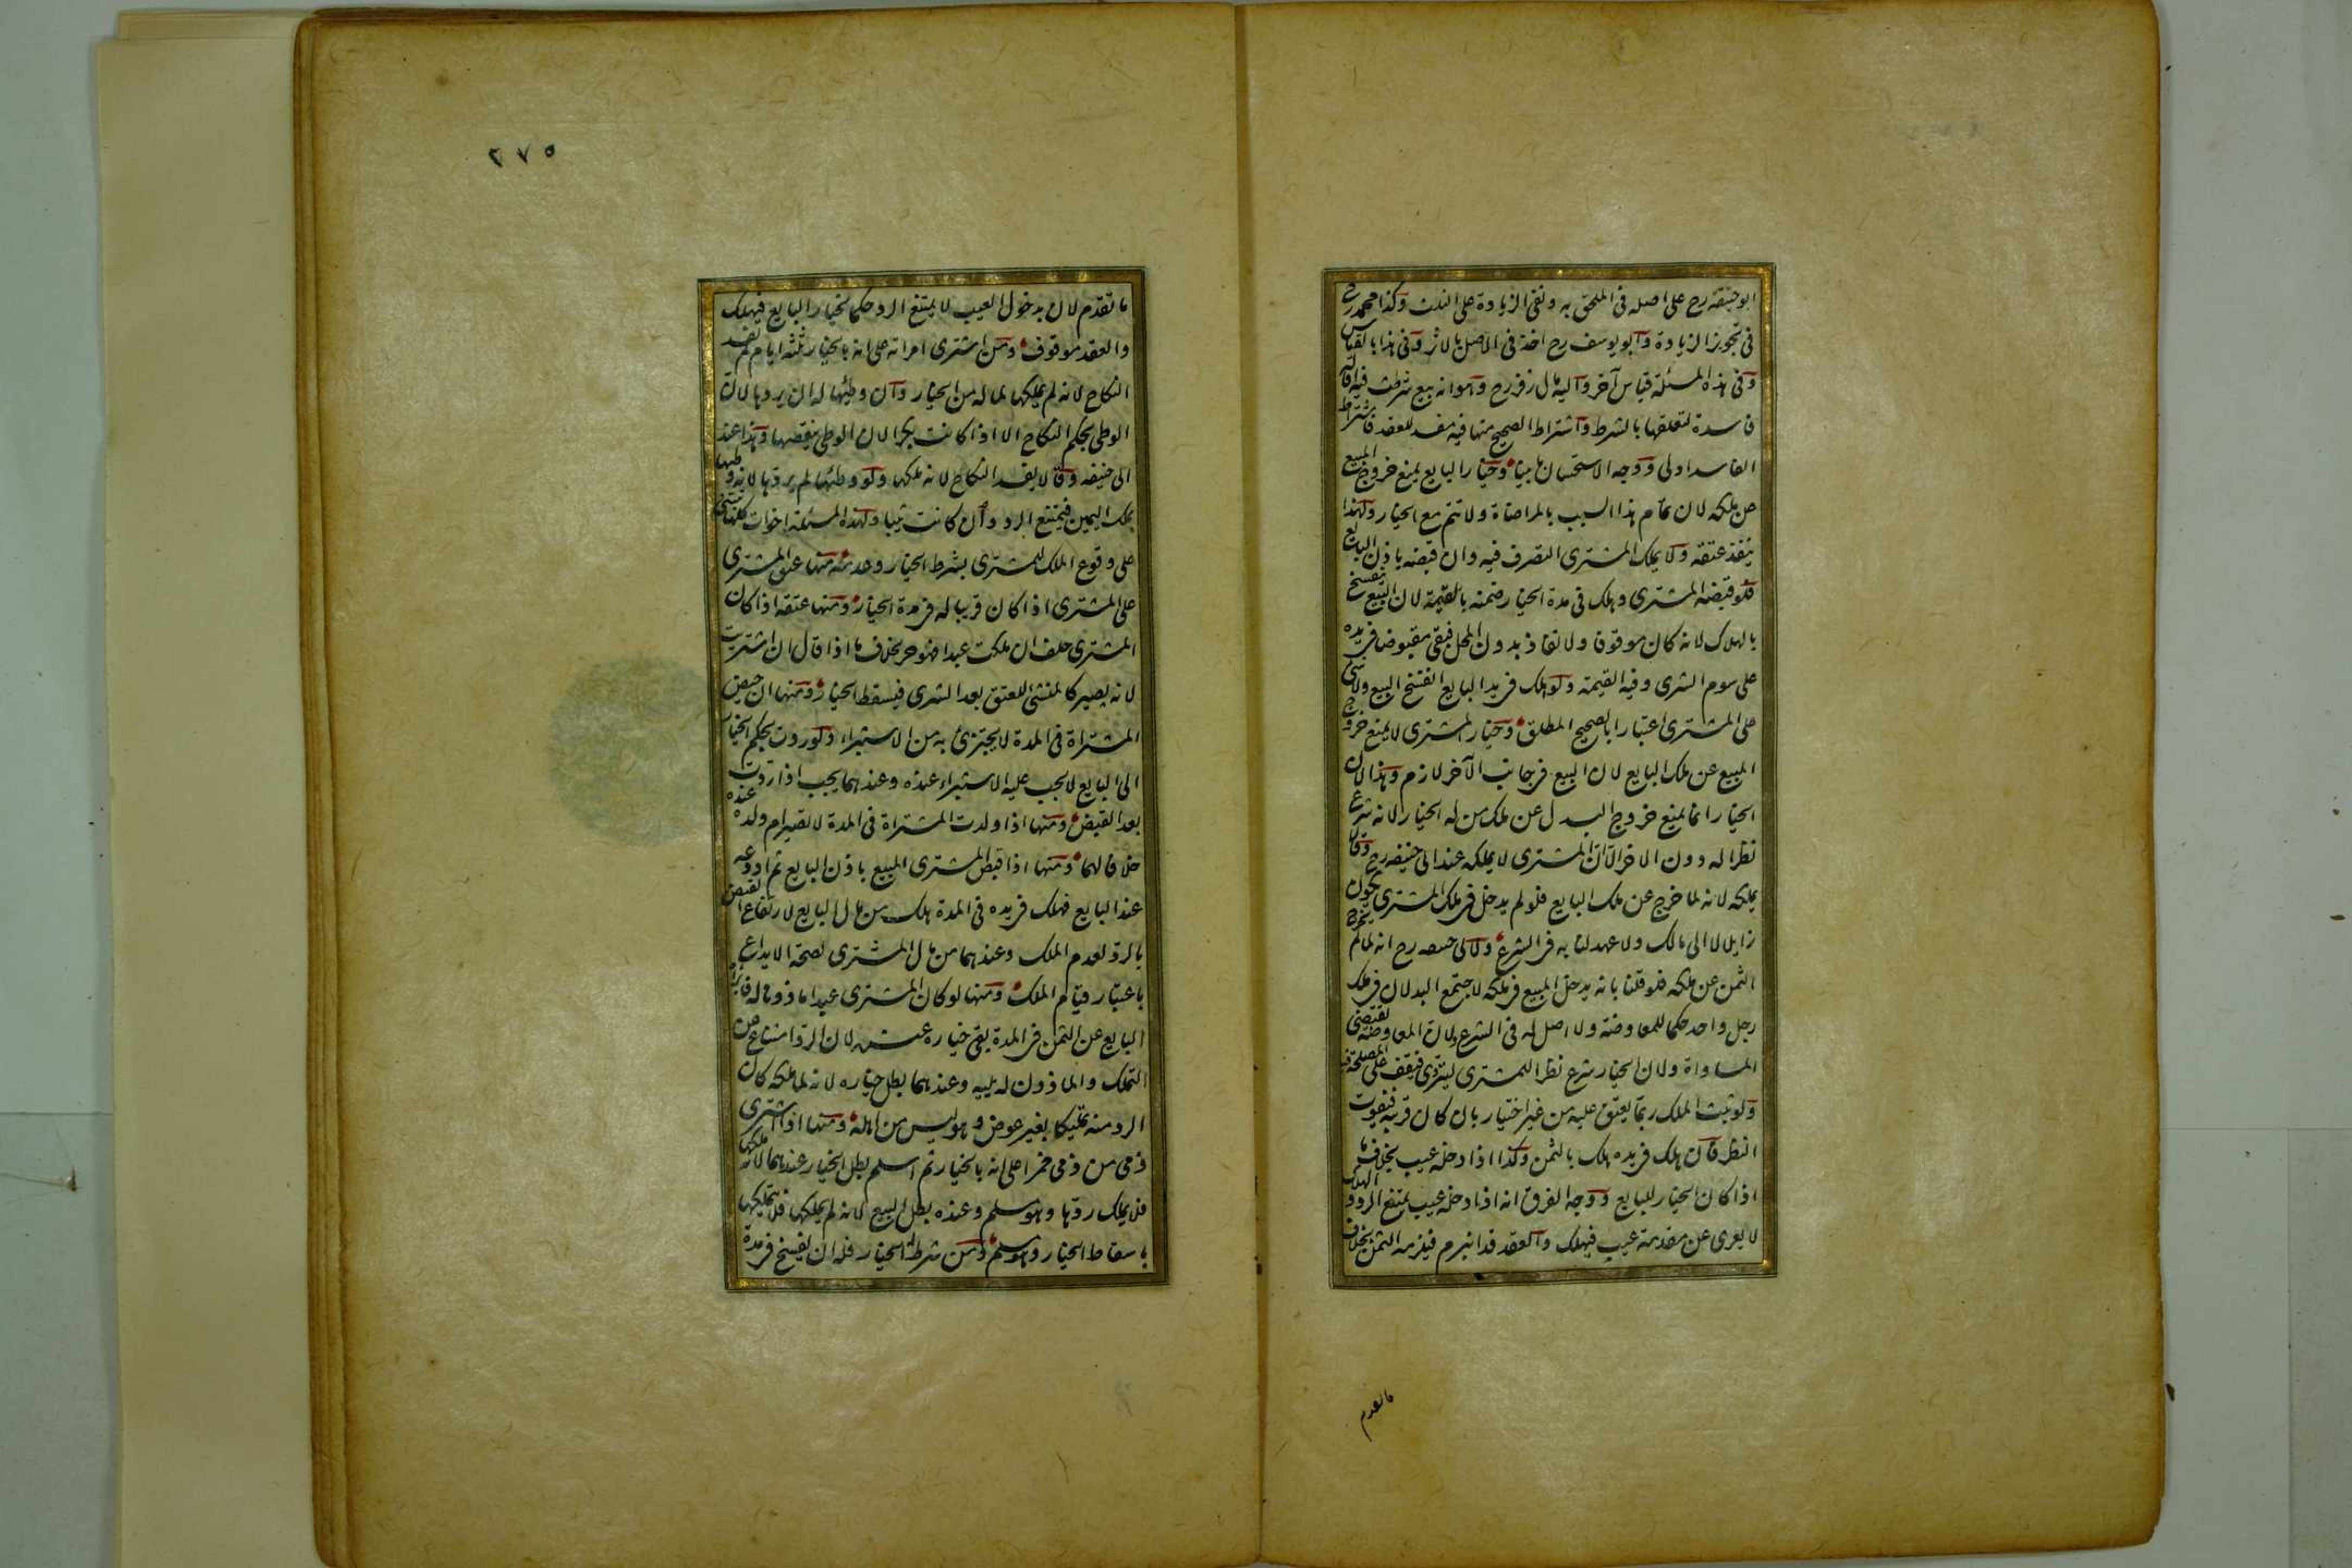 ابو حنيفة رح على اصله في الملحق به ونفى الزيادة على الثلث وكذا محمد رح
في تجويز الزيادة وابو يوسف رح اخذ في الاصل بالاثر وفي هذا بالقياس
وفي هذه المسئلة قياس آخر واليه مال زفر رح وهو انه بيع شرطت فيه اقالة
فاسدة لتعلقها بالشرط واشتراط الصحيح منها فيه مفسد للعقد فاشتراط
الفاسد اولى ووجه الاستحسان ما بينا وخيار البايع يمنع خروج المبيع
عن ملكه لان تمام هذا السبب بالمراضاة ولا تتم مع الخيار ولهذا
ينفذ عتقه ولا يملك المشترى التصرف فيه وان قبضه باذن البايع
فلو قبضه المشترى وهلك في مدة الخيار ضمنه بالقيمة لان البيع ينفسخ
بالهلاك لانه كان موقوفا ولا نفاذ بدون المحل فبقى مقبوضا في يده
على سوم الشرى وفيه القيمة ولو هلك في يد البايع انفسخ البيع ولا شئ
على المشترى اعتبارا بالصحيح المطلق وخيار المشترى لا يمنع خروج
المبيع عن ملك البايع لان البيع في جانب الآخر لازم وهذا لان
الخيار انما يمنع خروج البدل عن ملك من له الخيار لانه شرع
نظرا له دون الاخر الا ان المشترى لا يملكه عند ابى حنيفه رح وقالا
يملكه لانه لما خرج عن ملك البايع فلو لم يدخل في ملك المشترى يكون
زايلا لا الى مالك ولا عهد لنا به في الشرع ولابى حنيفه رح انه لما لم يخرج
الثمن عن ملكه فلو قلنا بانه يدخل المبيع في ملكه لاجتمع البدلان في ملك
رجل واحد حكما للمعاوضة ولا اصل له في الشرع ولان المعاوضة تقتضى
المساواة ولان الخيار شرع نظرا للمشترى ليتروى فيقف على المصلحة فيه
ولو ثبت الملك ربما يعتق عليه من غير اختيار بان كان قريبه فيفوت
النظر فان هلك في يده هلك بالثمن وكذا اذا دخله عيب بخلاف ما
اذا كان الخيار للبايع ووجه الفرق انه اذا دخله عيب يمتنع الرد والهلاك
لا يعرى عن مقدمة عيب فيهلك والعقد قد انبرم فيلزمه الثمن بخلاف
ما تقدم
٢٧٥
ما تقدم لان بدخول العيب لا يمتنع الرد حكما لخيار البايع فيهلك
والعقد موقوف ومن اشترى امراته على انه بالخيار ثلثة ايام لم يفسد
النكاح لانه لم يملكها لما له من الخيار وان وطئها له ان يردها لان
الوطى بحكم النكاح الا اذا كانت بكرا لان الوطى ينقصها وهذا عند
ابى حنيفه وقالا يفسد النكاح لانه ملكها ولو وطئها لم يردها لانه وطيها
بملك اليمين فيمتنع الرد وان كانت ثيبا ولهذه المسئلة اخوات كلها تبتنى
على وقوع الملك للمشترى بشرط الخيار وعدمه منها عتق المشترى
على المشترى اذا كان قريبا له في مدة الخيار ومنها عتقه اذا كان
المشترى حلف ان ملكت عبدا فهو حر بخلاف ما اذا قال ان اشتريت
لانه يصير كالمنشئ للعتق بعد الشرى فيسقط الخيار ومنها ان حيض
المشتراة في المدة لا يجتزئ به من الاستبراء ولو ردت بحكم الخيار
الى البايع لا يجب عليه الاستبراء عنده وعندهما يجب اذا ردت
بعد القبض ومنها اذا ولدت المشتراة في المدة لا تصير ام ولد عنده
خلافا لهما ومنها اذا قبض المشترى المبيع باذن البايع ثم اودعه
عند البايع فهلك في يده في المدة هلك من مال البايع لارتفاع القبض
بالرد لعدم الملك وعندهما من مال المشترى لصحة الايداع
باعتبار قيام الملك ومنها لو كان المشترى عبدا ماذونا له فابرأه
البايع عن الثمن في المدة بقى خياره عنده لان الرد امتناع عن
التملك والماذون له يليه وعندهما بطل خياره لانه لما ملكه كان
الرد منه تمليكا بغير عوض وهو ليس من اهله ومنها اذا اشترى
ذمى من ذمى خمرا على انه بالخيار ثم اسلم بطل الخيار عندهما لانه ملكها
فلا يملك ردها وهو مسلم وعنده بطل البيع لانه لم يملكها فلا يتملكها
باسقاط الخيار وهو مسلم ومن شرط له الخيار فله ان يفسخ في مدة